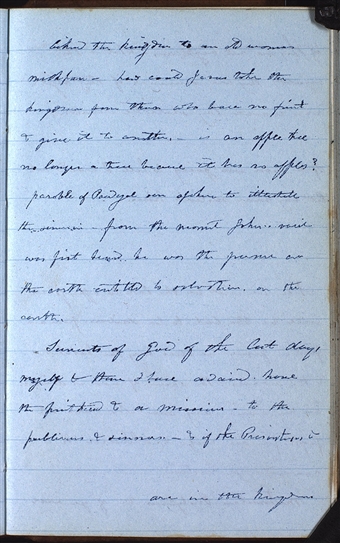 likend the kingdom to an old woman
milkpan - how could Jesus take the
kingdom from them who bare no fruit
& give it to another. - is an apple tree
no longer a tree because it has no apples?
parable of Prodigal son spoken to illustrate
the sinner - from the moment John's voice
was first heard he was the person on
the earth entitled to salvation on the
earth.
- Servants of God of the last days,
myself & those I have ordaind. have
the priesthood & a mission - to the
publicans & sinners - & if the Presbyterians &
are in the kingdom